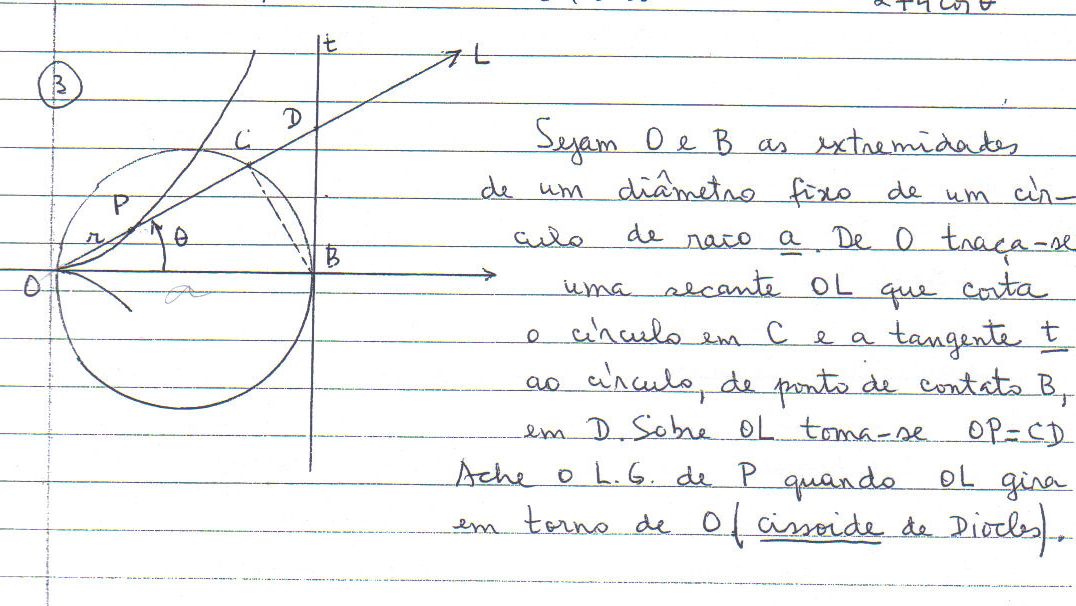 2+4 cos θ
t
L
3
D
C
P
r
θ
B
O
a
Sejam O e B as extremidades
de um diâmetro fixo de um cír-
culo de raio a. De O traça-se
uma secante OL que corta
o círculo em C e a tangente t
ao círculo, de ponto de contato B,
em D. Sobre OL toma-se OP=CD
Ache o L.G. de P quando OL gira
em torno de O (cissoide de Diocles).